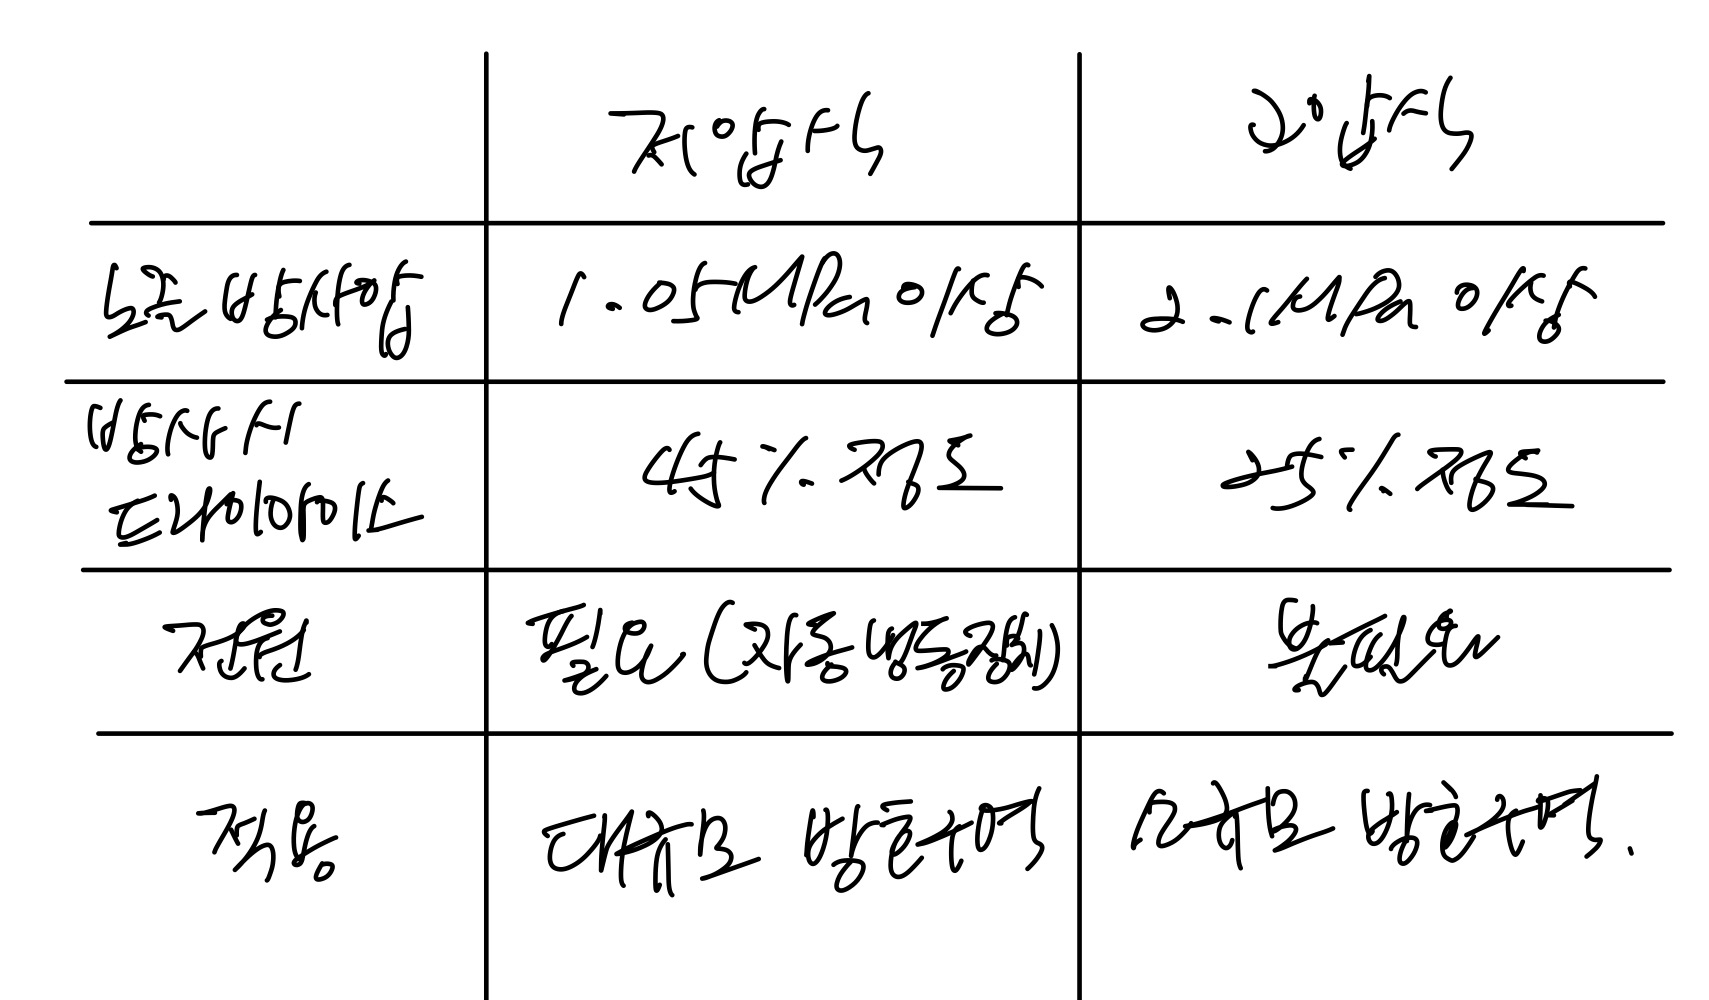 저압식 고압식
노즐 방사압 1.05MPa 이상 2.1MPa 이상
방사시 45%정도 25%정도
드라이아이스
전원 필요(자동냉동장치) 불필요
적용 대규모 방호구역 소규모 방호구역.